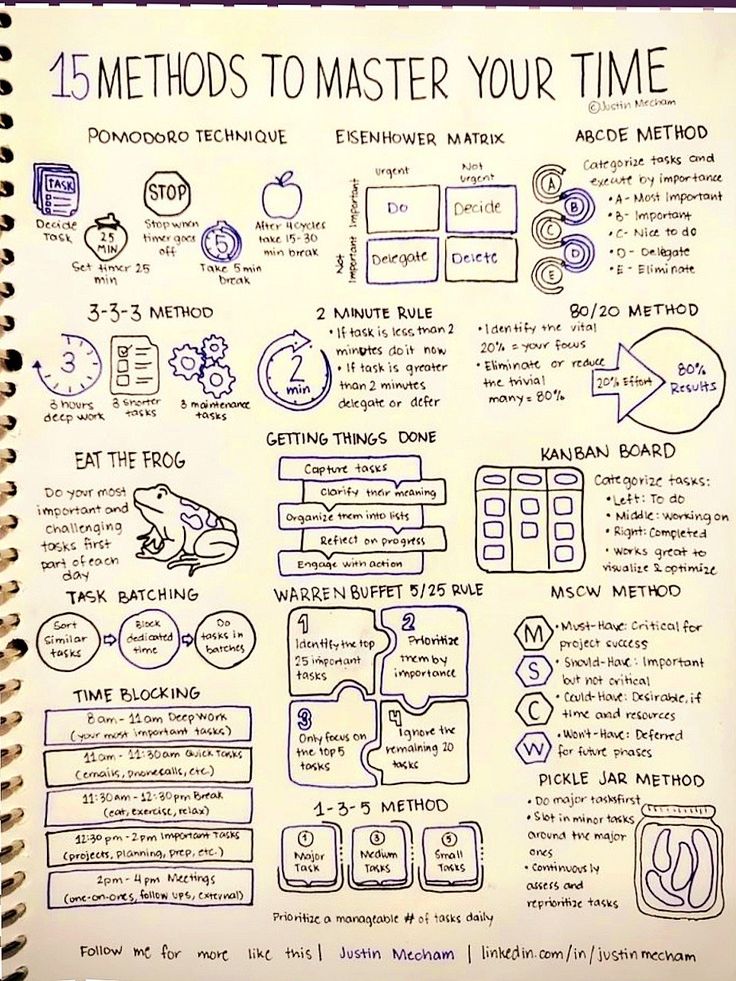 15 METHODS TO MASTER YOUR TIME
©Justin Mecham
POMODORO TECHNIQUE
TASK
Decide
Task
25
MIN
Set timer 25
min
STOP
Stop when
timer goes
off
5
Take 5 min
break
After 4 cycles
take 15-30
min break
EISENHOWER MATRIX
urgent
Not
urgent
Important
Not
Important
Do
Decide
Delegate
Delete
ABCDE METHOD
Categorize tasks and
execute by importance
A
B
C
D
E
• A- Most Important
• B- Important
• C- Nice to do
• D- Delegate
• E- Eliminate
3-3-3 METHOD
3
3 hours
deep work
3 shorter
tasks
3 maintenance
tasks
2 MINUTE RULE
2
min
• If task is less than 2
minutes do it now
• If task is greater
than 2 minutes
delegate or defer
80/20 METHOD
• Identify the vital
20% = your focus
• Eliminate or reduce
the trivial
many = 80%
20% Effort
80%
Results
EAT THE FROG
Do your most
important and
challenging
tasks first
part of each
day
GETTING THINGS DONE
Capture tasks
Clarify their meaning
Organize them into lists
Reflect on progress
Engage with action
KANBAN BOARD
Categorize tasks:
• Left: To do
• Middle: Working on
• Right: Completed
• Works great to
visualize & optimize
TASK BATCHING
Sort
Similar
tasks
Block
dedicated
time
Do
tasks in
batches
WARREN BUFFET 5/25 RULE
1
Identify the top
25 important
tasks
2
Prioritize
them by
importance
3
Only focus on
the top 5
tasks
4
Ignore the
remaining 20
tasks
MSCW METHOD
M
• Must-Have: Critical for
project success
S
• Should-Have: Important
but not critical
C
• Could-Have: Desirable, if
time and resources
W
• Won't-Have: Deferred
for future phases
TIME BLOCKING
8am - 11am Deep Work
(your most important tasks)
11am - 11:30am Quick Tasks
(emails, phonecalls, etc.)
11:30am - 12:30pm Break
(eat, exercise, relax)
12:30 pm - 2pm Important Tasks
(projects, planning, prep, etc.)
2pm - 4pm Meetings
(one-on-ones, follow ups, external)
1-3-5 METHOD
1
Major
Task
3
Medium
Tasks
5
Small
Tasks
Prioritize a manageable # of tasks daily
PICKLE JAR METHOD
• Do major tasks first
• Slot in minor tasks
around the major
ones
• Continuously
assess and
reprioritize tasks
Follow me for more like this | Justin Mecham | linkedin.com/in/justinmecham